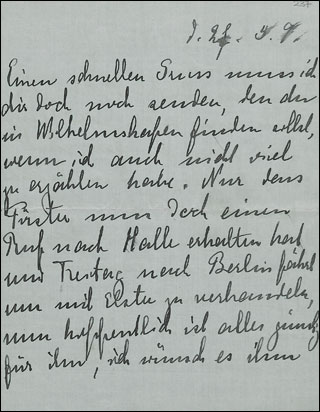 d. 27. 4. 41
Einen schnellen Gruss muss ich
dir doch noch senden, den du
in Wilhelmshafen finden sollst,
wenn ich auch nicht viel
zu erzählen habe. Nur dass
Förster nun doch einen
Ruf nach Halle erhalten hat
und Freitag nach Berlin fährt
um mit zu verhandeln,
nun hoffentlich ist alles günstig
für ihn, ich wünsch es ihm